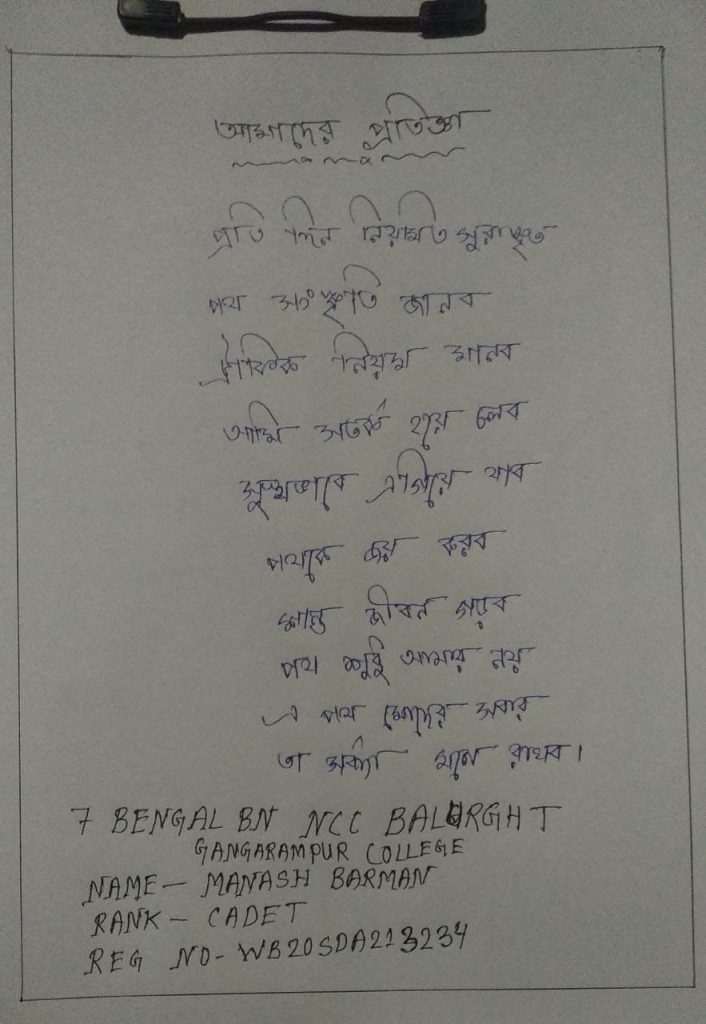 আমাদের প্রতিজ্ঞা
প্রতি দিন নিয়মিত
পথ সংস্কৃতি জানব
ট্রাফিক নিয়ম মানব
আমি সতর্ক হয়ে চলব
সুস্থভাবে এগিয়ে যাব
পথকে জয় করব
শান্ত জীবন গড়ব
পথ শুধু আমার নয়
এ পথ মোদের সবার
তা সর্বদা মনে রাখব।
7 BENGAL BN NCC BALURGHT
GANGARAMPUR COLLEGE
NAME - MANASH BARMAN
RANK - CADET
REG NO- WB20SDA213234